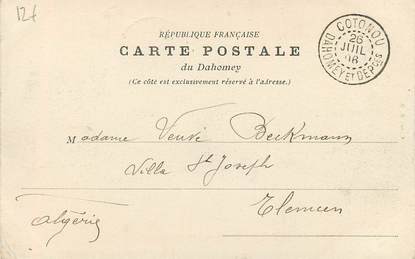 12f
RÉPUBLIQUE FRANÇAISE
CARTE POSTALE
du Dahomey
(Ce côté est exclusivement réservé à l'adresse.)
COTONOU
26
JUIL
06
DAHOMEY ET DEPces
Madame Veuve Beckmann
Villa St Joseph
Tlemcen
Algérie